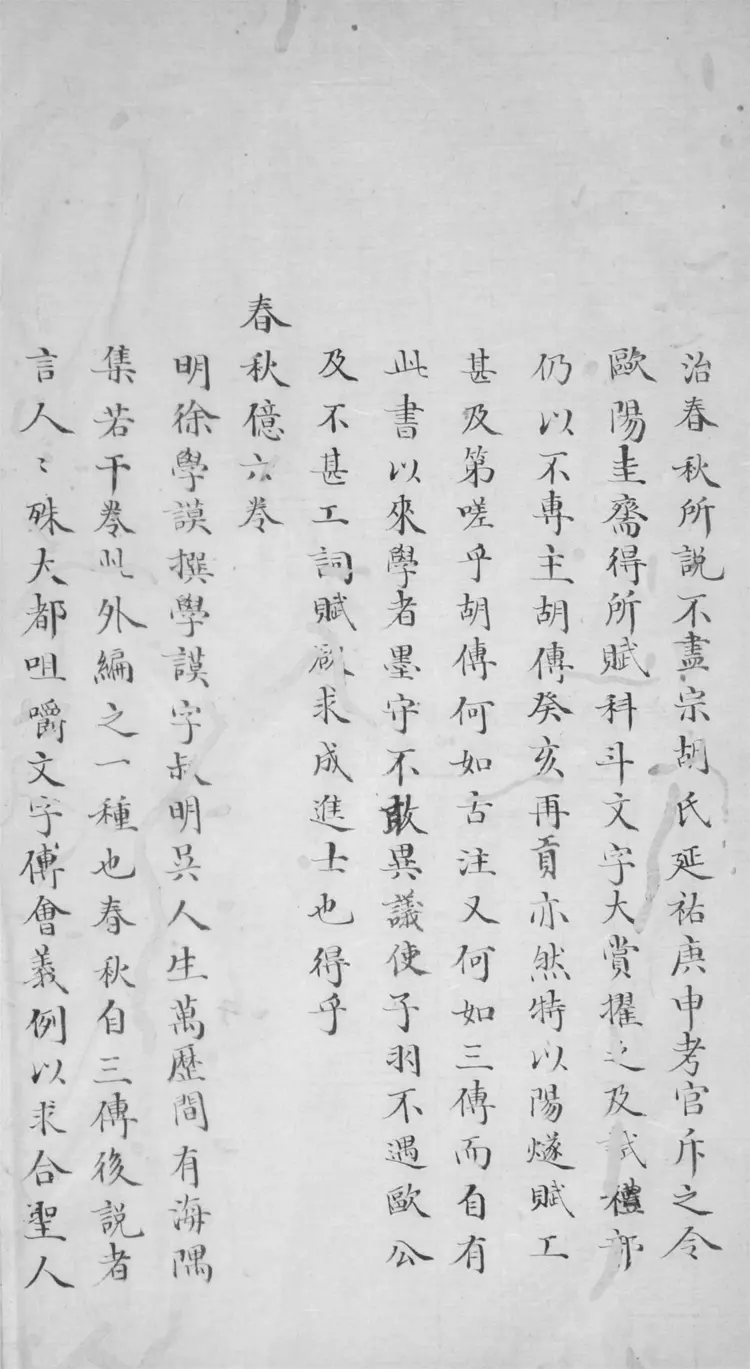 治春秋所説不盡宗胡氏延祐庚申考官斥之令
歐陽圭齋得所賦科斗文字大賞擢之及試禮部
仍以不專主胡傳癸亥再貢亦然特以陽燧賦工
甚及第嗟乎胡傳何如古注又何如三傳而自有
此書以來學者墨守不敢異議使子羽不遇歐公
及不甚工詞賦欲求成進士也得乎
春秋億六卷
明徐學謨撰學謨字叔明吳人生萬歷間有海隅
集若干卷此外編之一種也春秋自三傳後説者
言人〻殊大都咀嚼文字傅會義例以求合聖人